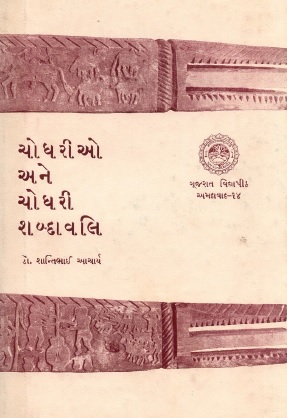 ચોધરીઓ
અને
ચોધરી
શબ્દાવલિ
ડૉ. શાન્તિભાઈ આચાર્ય
ગુજરાત વિદ્યાપીઠ
અમદાવાદ-૧૪